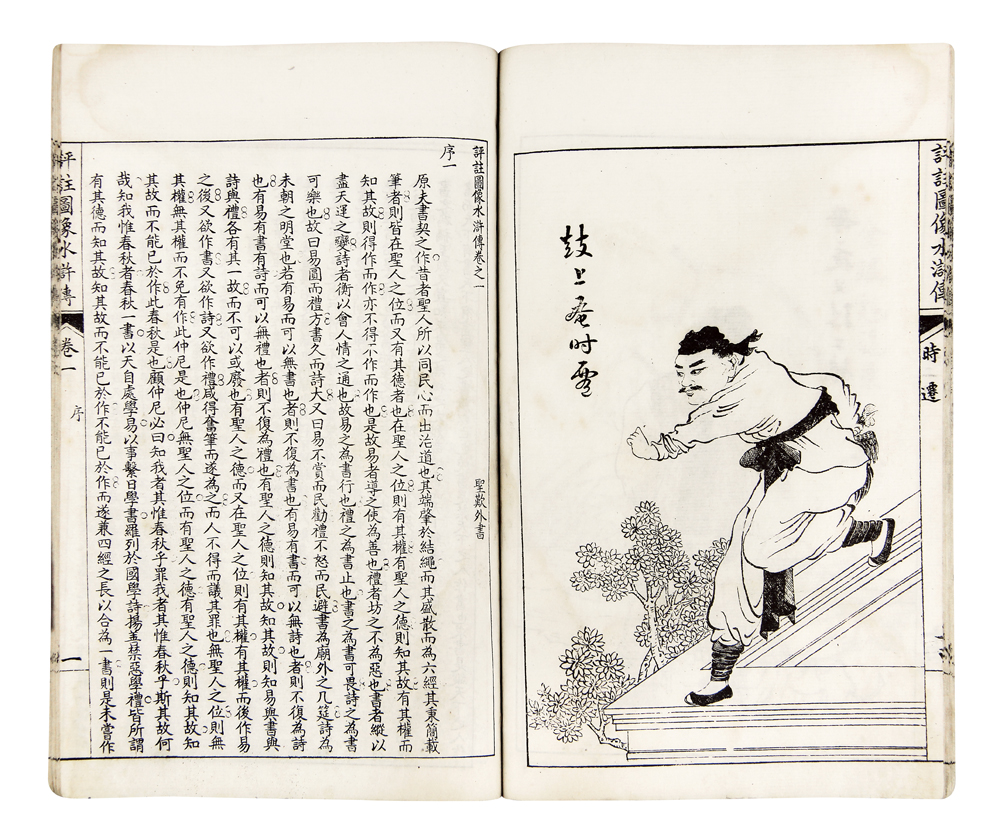 評註圖像水滸傳
時遷
鼓上蚤时遷
評註圖像水滸傳卷之一
序一
聖歎外書
原夫書契之作昔者聖人所以同民心而出治道也其端肇於結繩而其盛殽而為六經其秉簡載
筆者則皆在聖人之位而又有其德者也在聖人之位則有其權有聖人之德則知其故有其權而
知其故則得作而作亦不得不作而作也是故易者導之使為善也禮者坊之不為惡也書者縱以
盡天運之變詩者衡以會人情之通也故易之為書行也禮之為書止也書之為書可畏詩之為書
可樂也故曰易圓而禮方書久而詩大又曰易不賞而民勸禮不怒而民避書為廟外之几筵詩為
未朝之明堂也若有易而可以無書也者則不復為書也有易有書而可以無詩也者則不復為詩
也有易有書有詩而可以無禮也者則不復為禮也有聖人之德則知其故知其故則知易與書與
詩與禮各有其一故而不可以或廢也有聖人之德而又在聖人之位則有其權有其權而後作易
之後又欲作書又欲作詩又欲作禮咸得奮筆而遂為之而人不得而議其罪也無聖人之位則無
其權無其權而不免有作此仲尼是也仲尼無聖人之位而有聖人之德有聖人之德則知其故知
其故而不能已於作此春秋是也顧仲尼必曰知我者其惟春秋乎罪我者其惟春秋乎斯其故何
哉知我惟春秋者春秋一書以天自處學易以事繫日學書羅列於國學詩揚善禁惡學禮皆所謂
有其德而知其故知其故而不能已於作不能已於作而遂兼四經之長以合為一書則是未嘗作
評註圖象水滸傳
卷一
序
一